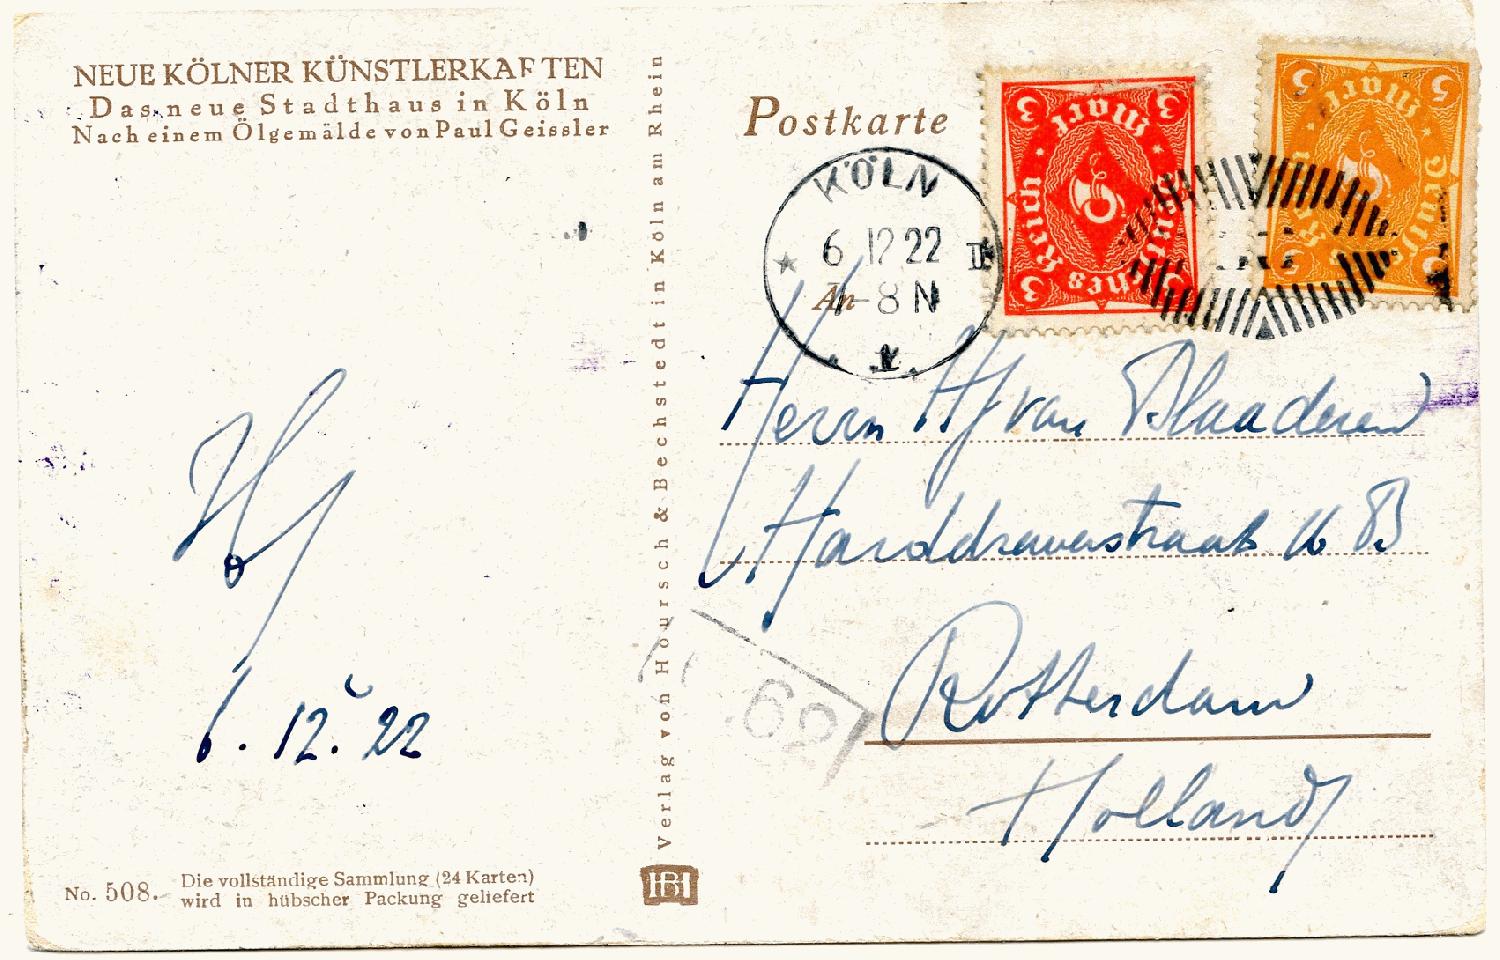 NEUE KÖLNER KÜNSTLERKARTEN
Das neue Stadthaus in Köln
Nach einem Ölgemälde von Paul Geissler
6. 12. 22
No. 508.
Die vollständige Sammlung (24 Karten)
wird in hübscher Packung geliefert
Verlag von Hoursch & Bechstedt in Köln am Rhein
HB
Postkarte
An
KÖLN
6 12 22
8 N
3 Mark 3
Deutsches Reich
3 3
5 Mark 5
Deutsches Reich
5 5
Herrn HJ van Blaaderen
Harddraverstraat 16 B
Rotterdam
Holland
62